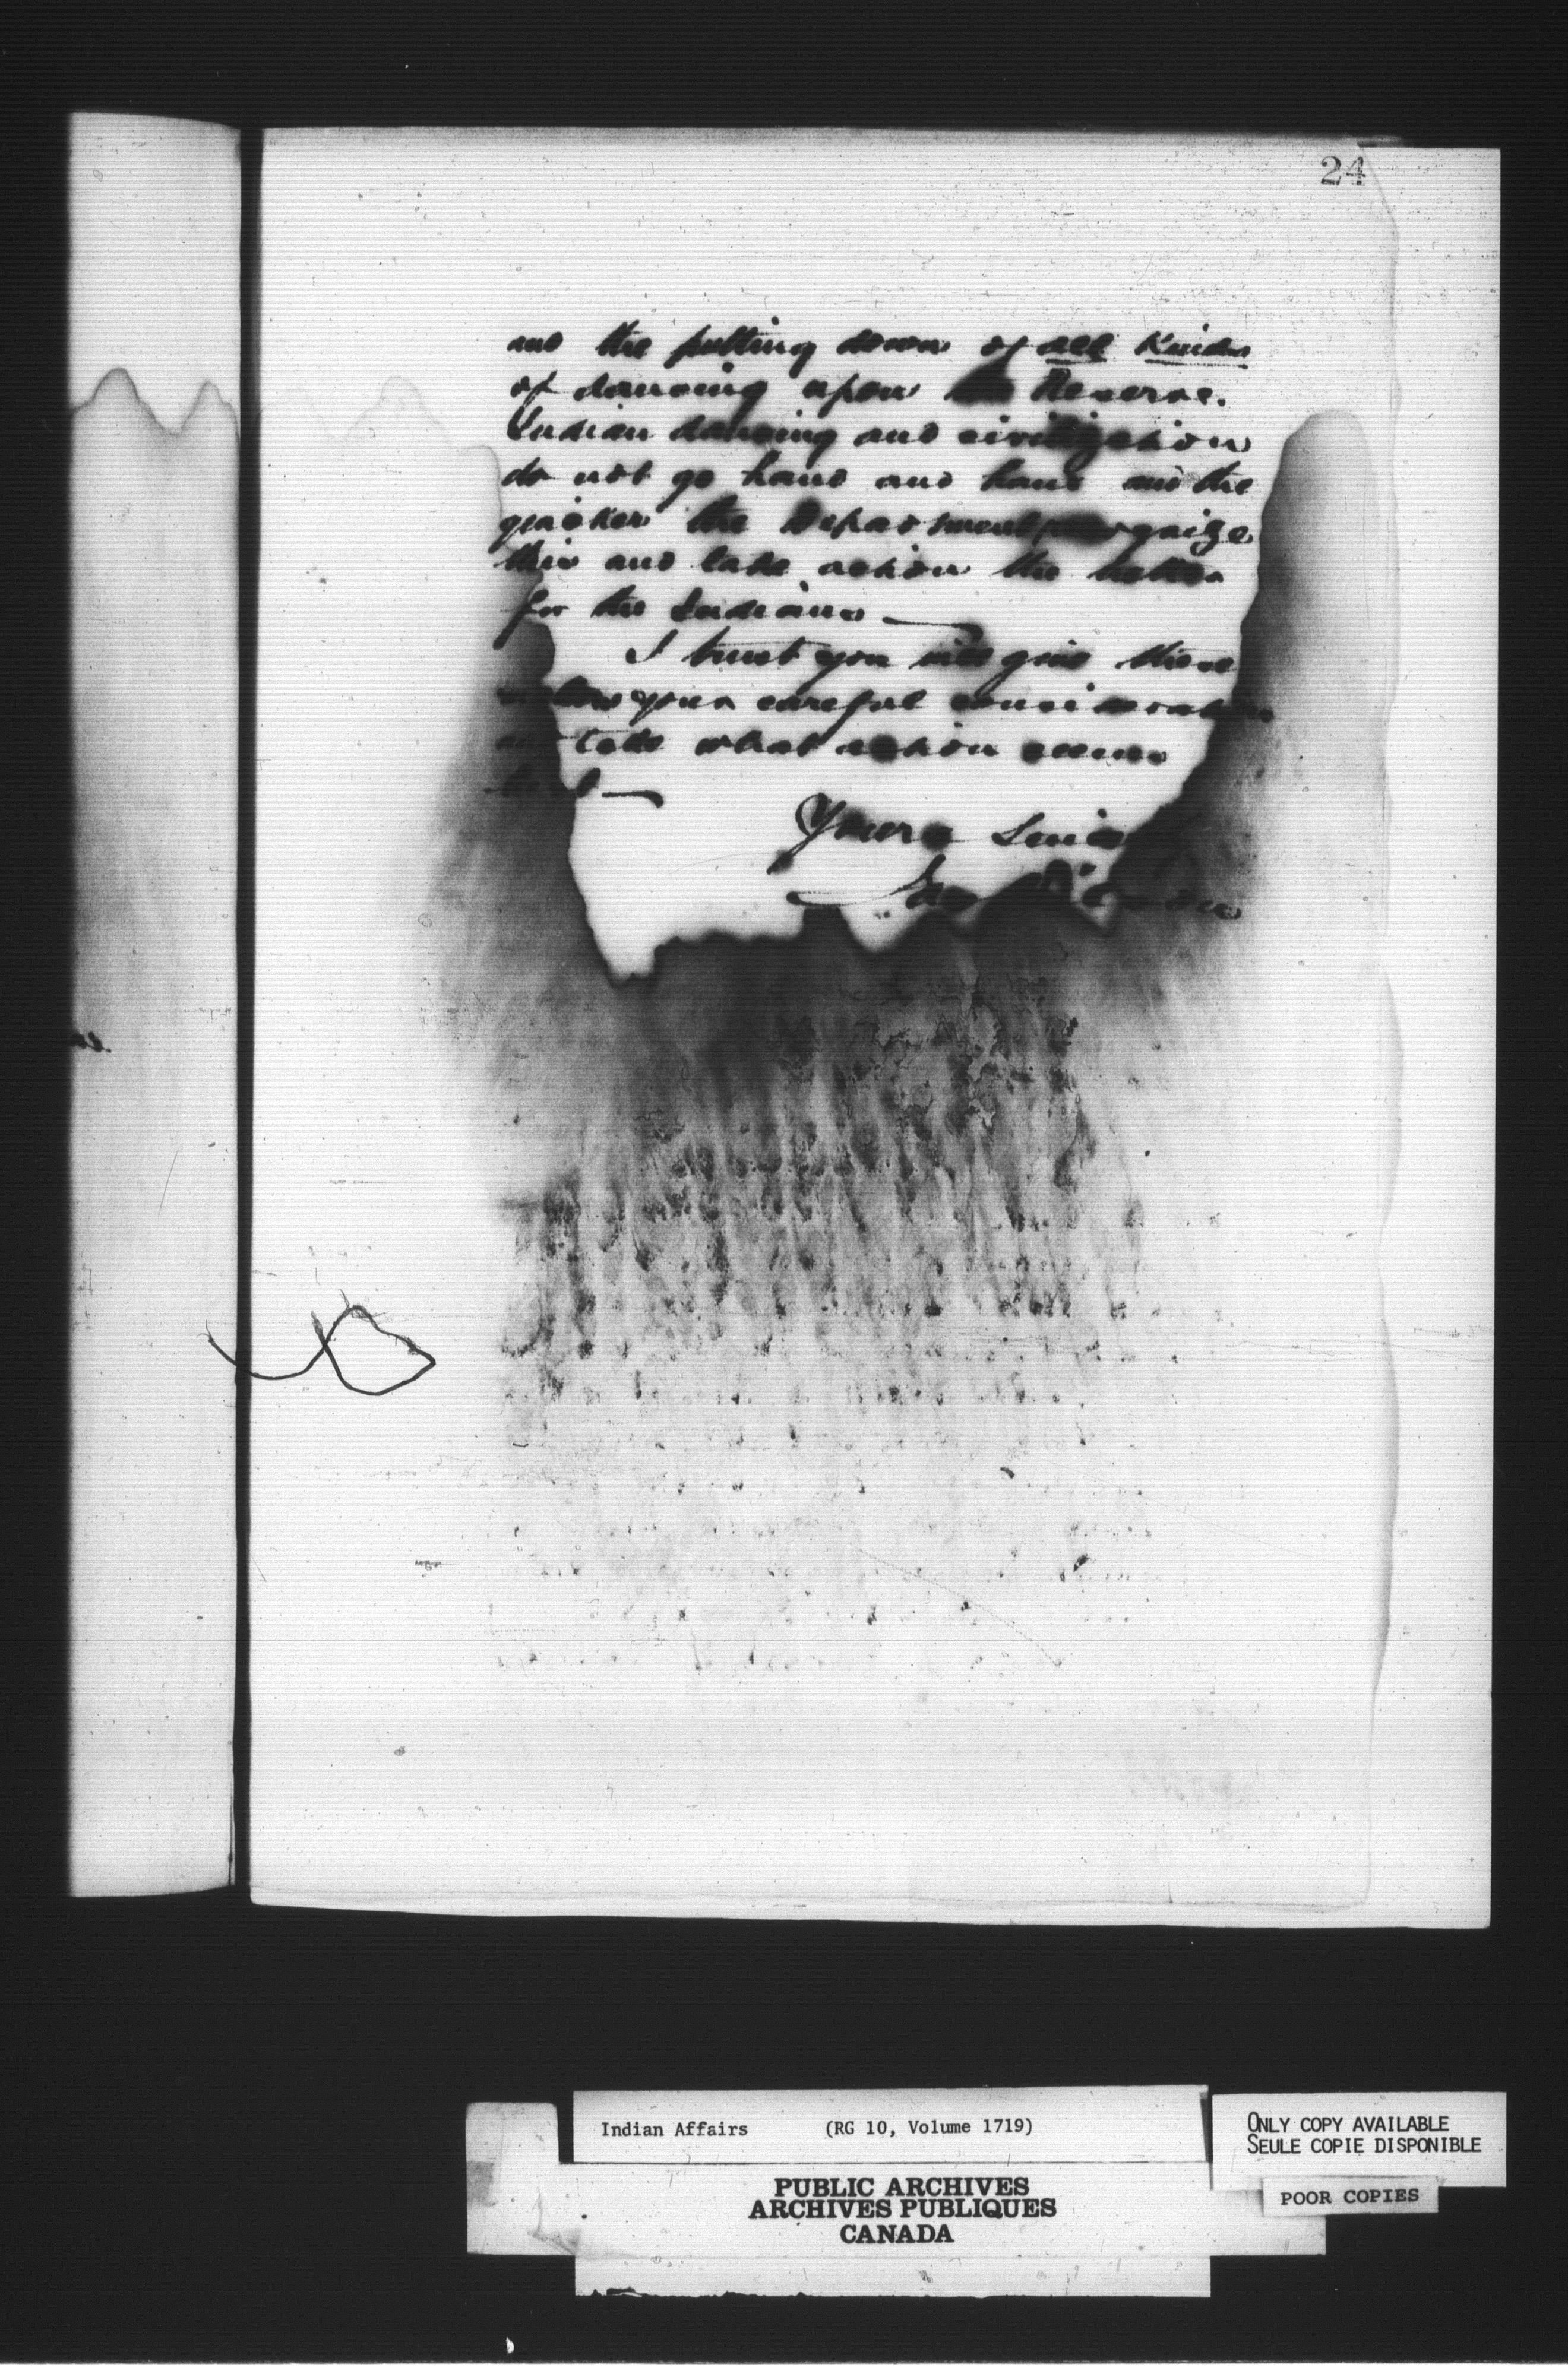 24
and the putting down of all Kinds
of dancing upon the Reserve.
Indian dancing and civilization
do not go hand and hand and the
quicker the Department recognize
this and take action the better
for the Indians —
I trust you will give these
your careful consideration
and take what action seems
best —
Yours
Indian Affairs (RG 10, Volume 1719)
ONLY COPY AVAILABLE
SEULE COPIE DISPONIBLE
PUBLIC ARCHIVES
ARCHIVES PUBLIQUES
CANADA
POOR COPIES